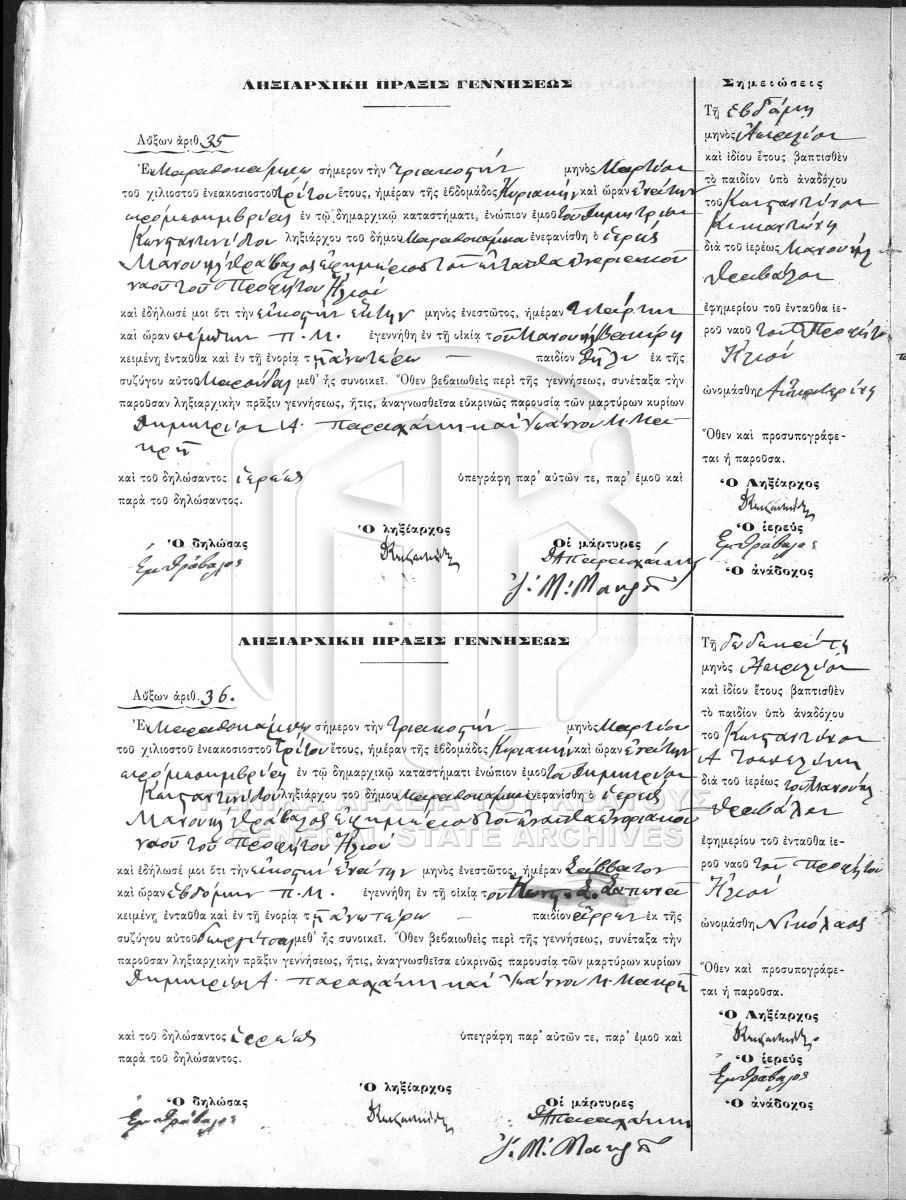 ΛΗΞΙΑΡΧΙΚΗ ΠΡΑΞΙΣ ΓΕΝΝΗΣΕΩΣ
Αὔξων ἀριθ. 35
Ἐν Μαραθοκάμπῳ σήμερον τὴν τριακοστήν μηνὸς Μαρτίου
τοῦ χιλιοστοῦ ἐνεακοσιοστοῦ τρίτου ἔτους, ἡμέραν τῆς ἑβδομάδος Κυριακήν καὶ ὥραν ἐνάτην
προμεσημβρίας ἐν τῷ δημαρχικῷ καταστήματι, ἐνώπιον ἐμοῦ τοῦ Δημητρίου
Κωνσταντινίδου ληξιάρχου τοῦ δήμου Μαραθοκάμπου ἐνεφανίσθη ὁ ἱερεύς
Μανουήλ Θράβαλος ἐφημέριος τοῦ ἐνταῦθα ἐνοριακοῦ
ναοῦ τοῦ Προφήτου Ἠλιοῦ
καὶ ἐδήλωσέ μοι ὅτι τὴν εἰκοστήν ἕκτην μηνὸς ἐνεστῶτος, ἡμέραν Τετάρτην
καὶ ὥραν πέμπτην π.μ. ἐγεννήθη ἐν τῇ οἰκίᾳ τοῦ Μανουήλ
κειμένῃ ἐνταῦθα καὶ ἐν τῇ ἐνορίᾳ τῇ ἀνωτέρω — παιδίον θῆλυ ἐκ τῆς
συζύγου αὐτοῦ μεθ' ἧς συνοικεῖ. Ὅθεν βεβαιωθεὶς περὶ τῆς γεννήσεως, συνέταξα τὴν
παροῦσαν ληξιαρχικὴν πρᾶξιν γεννήσεως, ἥτις, ἀναγνωσθεῖσα εὐκρινῶς παρουσίᾳ τῶν μαρτύρων κυρίων
Δημητρίου Α. καὶ Ἰωάννου Μ. Μα-
κρῆ
καὶ τοῦ δηλώσαντος ἱερέως ὑπεγράφη παρ' αὐτῶν τε, παρ' ἐμοῦ καὶ
παρὰ τοῦ δηλώσαντος.
Ὁ δηλώσας Ὁ ληξίαρχος Οἱ μάρτυρες
Ἐμ Θράβαλος
Ἰ. Μ. Μακρῆ
Σημειώσεις
Τῇ ἑβδόμῃ
μηνὸς Ἀπριλίου
καὶ ἰδίου ἔτους βαπτισθὲν
τὸ παιδίον ὑπὸ ἀναδόχου
τοῦ Κωνσταντίνου
διὰ τοῦ ἱερέως Μανουήλ
Θραβάλου
ἐφημερίου τοῦ ἐνταῦθα ἱε-
ροῦ ναοῦ τοῦ Προφήτου
Ἠλιοῦ
ὠνομάσθη Αἰκατερίνη
Ὅθεν καὶ προσυπογράφε-
ται ἡ παροῦσα.
Ὁ Ληξίαρχος
Ὁ ἱερεύς
Ἐμ Θράβαλος
Ὁ ἀνάδοχος
ΛΗΞΙΑΡΧΙΚΗ ΠΡΑΞΙΣ ΓΕΝΝΗΣΕΩΣ
Αὔξων ἀριθ. 36.
Ἐν Μαραθοκάμπῳ σήμερον τὴν τριακοστήν μηνὸς Μαρτίου
τοῦ χιλιοστοῦ ἐνεακοσιοστοῦ τρίτου ἔτους, ἡμέραν τῆς ἑβδομάδος Κυριακήν καὶ ὥραν ἐνάτην
προμεσημβρίας ἐν τῷ δημαρχικῷ καταστήματι ἐνώπιον ἐμοῦ τοῦ Δημητρίου
Κωνσταντινίδου ληξιάρχου τοῦ δήμου Μαραθοκάμπου ἐνεφανίσθη ὁ ἱερεύς
Μανουήλ Θράβαλος ἐφημέριος τοῦ ἐνταῦθα ἐνοριακοῦ
ναοῦ τοῦ Προφήτου Ἠλιοῦ
καὶ ἐδήλωσέ μοι ὅτι τὴν εἰκοστήν ἐνάτην μηνὸς ἐνεστῶτος, ἡμέραν Σάββατον
καὶ ὥραν ἑβδόμην π.μ. ἐγεννήθη ἐν τῇ οἰκίᾳ τοῦ
κειμένῃ ἐνταῦθα καὶ ἐν τῇ ἐνορίᾳ τῇ ἀνωτέρω — παιδίον ἄρρεν ἐκ τῆς
συζύγου αὐτοῦ Γεωργίτσας μεθ' ἧς συνοικεῖ. Ὅθεν βεβαιωθεὶς περὶ τῆς γεννήσεως, συνέταξα τὴν
παροῦσαν ληξιαρχικὴν πρᾶξιν γεννήσεως, ἥτις, ἀναγνωσθεῖσα εὐκρινῶς παρουσίᾳ τῶν μαρτύρων κυρίων
Δημητρίου Α. καὶ Ἰωάννου Μ. Μακρῆ
καὶ τοῦ δηλώσαντος ἱερέως ὑπεγράφη παρ' αὐτῶν τε, παρ' ἐμοῦ καὶ
παρὰ τοῦ δηλώσαντος.
Ὁ δηλώσας Ὁ ληξίαρχος Οἱ μάρτυρες
Ἐμ Θράβαλος
Ἰ. Μ. Μακρῆ
Τῇ δωδεκάτῃ
μηνὸς Ἀπριλίου
καὶ ἰδίου ἔτους βαπτισθὲν
τὸ παιδίον ὑπὸ ἀναδόχου
τοῦ Κωνσταντίνου
διὰ τοῦ ἱερέως τοῦ Μανουήλ
Θραβάλου
ἐφημερίου τοῦ ἐνταῦθα ἱε-
ροῦ ναοῦ τοῦ Προφήτου
Ἠλιοῦ
ὠνομάσθη Νικόλαος
Ὅθεν καὶ προσυπογράφε-
ται ἡ παροῦσα.
Ὁ Ληξίαρχος
Ὁ ἱερεύς
Ἐμ Θράβαλος
Ὁ ἀνάδοχος
ΓΕΝΙΚΑ ΑΡΧΕΙΑ ΤΟΥ ΚΡΑΤΟΥΣ
GENERAL STATE ARCHIVES